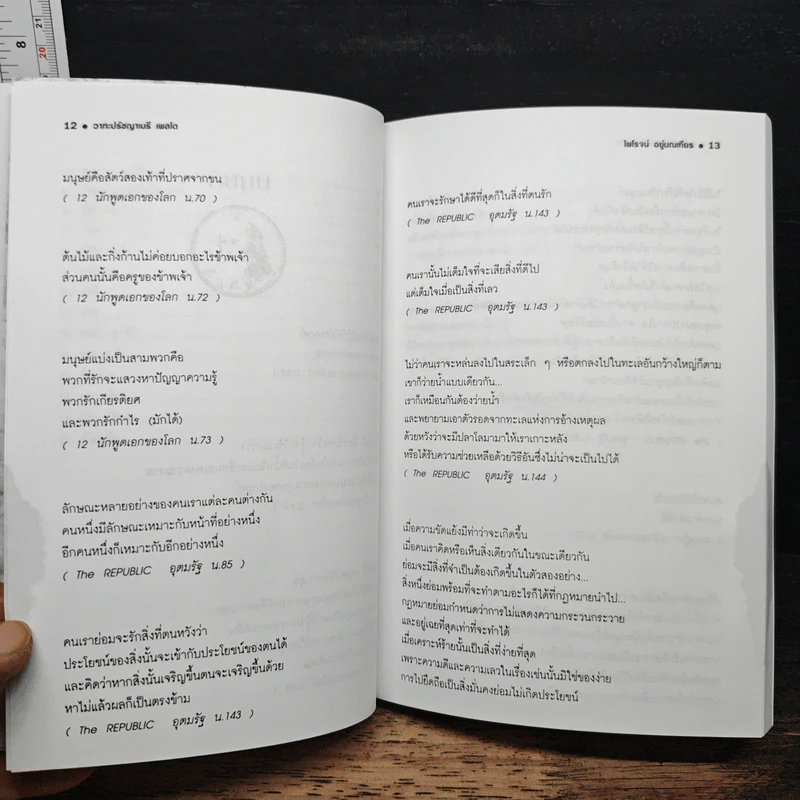 8
21
20
12 ● วาทะปรัชญาเมธี เพลโต
มนุษย์คือสัตว์สองเท้าที่ปราศจากขน
( 12 นักพูดเอกของโลก น.70 )
ต้นไม้และกิ่งก้านไม่ค่อยบอกอะไรข้าพเจ้า
ส่วนคนนั้นคือครูของข้าพเจ้า
( 12 นักพูดเอกของโลก น.72 )
มนุษย์แบ่งเป็นสามพวกคือ
พวกที่รักจะแสวงหาปัญญาความรู้
พวกรักเกียรติยศ
และพวกรักกำไร (มักได้)
( 12 นักพูดเอกของโลก น.73 )
ลักษณะหลายอย่างของคนเราแต่ละคนต่างกัน
คนหนึ่งมีลักษณะเหมาะกับหน้าที่อย่างหนึ่ง
อีกคนหนึ่งก็เหมาะกับอีกอย่างหนึ่ง
( The REPUBLIC อุตมรัฐ น.85 )
คนเราย่อมจะรักสิ่งที่ตนหวังว่า
ประโยชน์ของสิ่งนั้นจะเข้ากับประโยชน์ของตนได้
และคิดว่าหากสิ่งนั้นเจริญขึ้นตนจะเจริญขึ้นด้วย
หาไม่แล้วผลก็เป็นตรงข้าม
( The REPUBLIC อุตมรัฐ น.143 )
ไพโรจน์ อยู่มณเฑียร ● 13
คนเราจะรักษาได้ดีที่สุดก็ในสิ่งที่ตนรัก
( The REPUBLIC อุตมรัฐ น.143 )
คนเรานั้นไม่เต็มใจที่จะเสียสิ่งที่ดีไป
แต่เต็มใจเมื่อเป็นสิ่งที่เลว
( The REPUBLIC อุตมรัฐ น.143 )
ไม่ว่าคนเราจะหล่นลงไปในสระเล็ก ๆ หรือตกลงไปในทะเลอันกว้างใหญ่ก็ตาม
เขาก็ว่ายน้ำแบบเดียวกัน...
เราก็เหมือนกันต้องว่ายน้ำ
และพยายามเอาตัวรอดจากทะเลแห่งการอ้างเหตุผล
ด้วยหวังว่าจะมีปลาโลมามาให้เราเกาะหลัง
หรือได้รับความช่วยเหลือด้วยวิธีอันซึ่งไม่น่าจะเป็นไปได้
( The REPUBLIC อุตมรัฐ น.144 )
เมื่อความขัดแย้งมีท่าว่าจะเกิดขึ้น
เมื่อคนเราคิดหรือเห็นสิ่งเดียวกันในขณะเดียวกัน
ย่อมจะมีสิ่งที่จำเป็นต้องเกิดขึ้นในตัวสองอย่าง...
สิ่งหนึ่งย่อมพร้อมที่จะทำตามอะไรก็ได้ที่กฎหมายนำไป...
กฎหมายย่อมกำหนดว่าการไม่แสดงความกระวนกระวาย
และอยู่เฉยที่สุดเท่าที่จะทำได้
เมื่อเคราะห์ร้ายนั้นเป็นสิ่งที่ง่ายที่สุด
เพราะความดีและความเลวในเรื่องเช่นนั้นมิใช่ของง่าย
การไปยึดถือเป็นสิ่งมั่นคงย่อมไม่เกิดประโยชน์